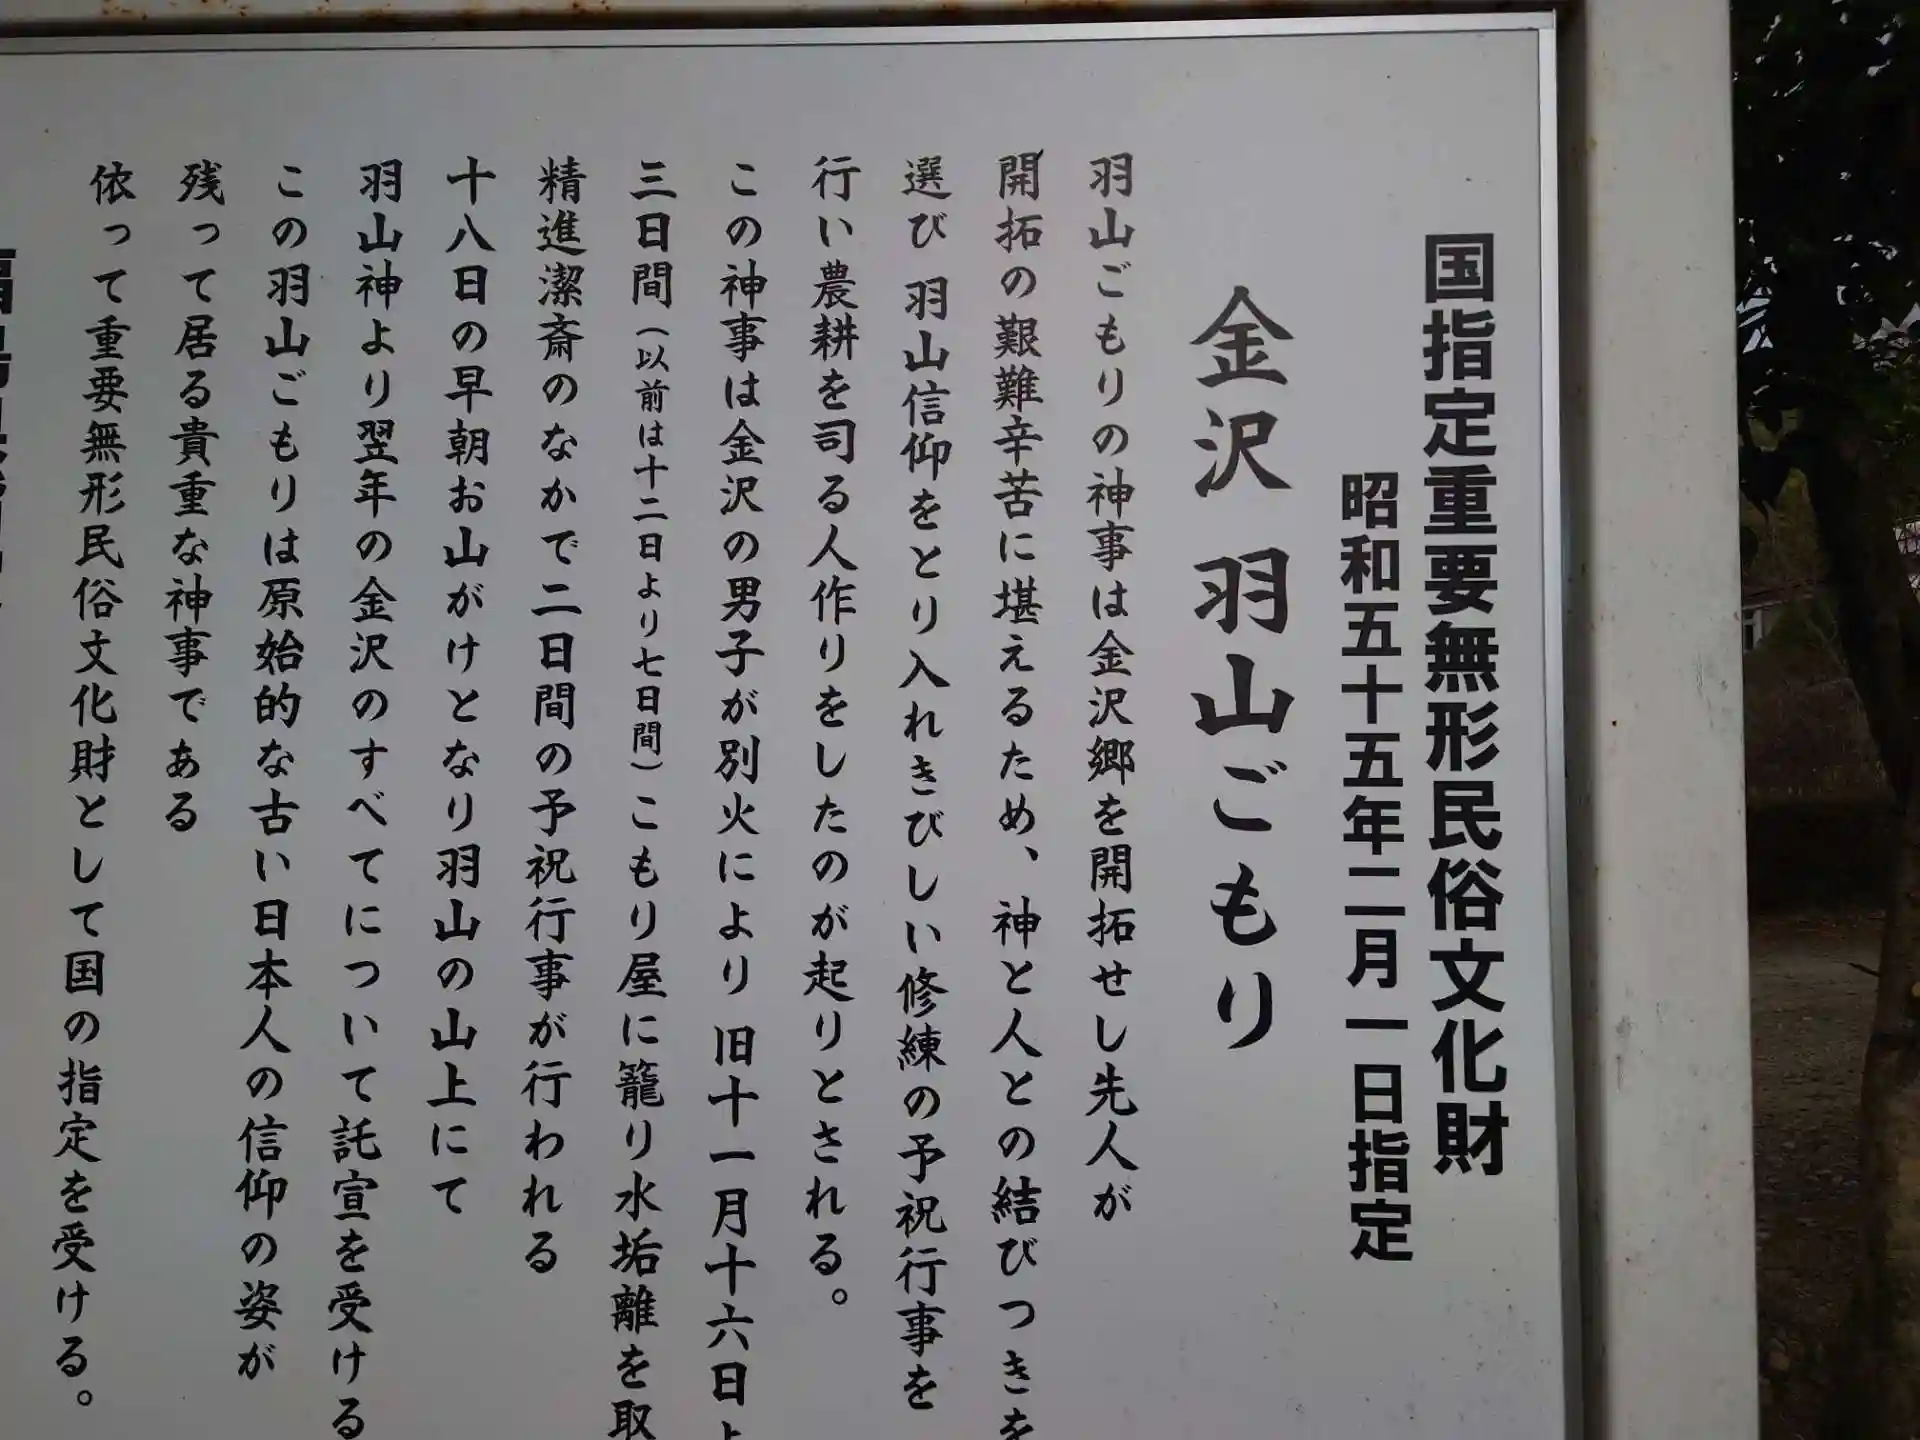 国指定重要無形民俗文化財
昭和五十五年二月一日指定
金沢 羽山ごもり
羽山ごもりの神事は金沢郷を開拓せし先人が
開拓の艱難辛苦に堪えるため、神と人との結びつきを
選び 羽山信仰をとり入れきびしい修練の予祝行事を
行い農耕を司る人作りをしたのが起りとされる。
この神事は金沢の男子が別火により 旧十一月十六日よ
三日間（以前は十二日より七日間）こもり屋に籠り水垢離を取
精進潔斎のなかで二日間の予祝行事が行われる
十八日の早朝お山がけとなり羽山の山上にて
羽山神より翌年の金沢のすべてについて託宣を受ける
この羽山ごもりは原始的な古い日本人の信仰の姿が
残って居る貴重な神事である
依って重要無形民俗文化財として国の指定を受ける。